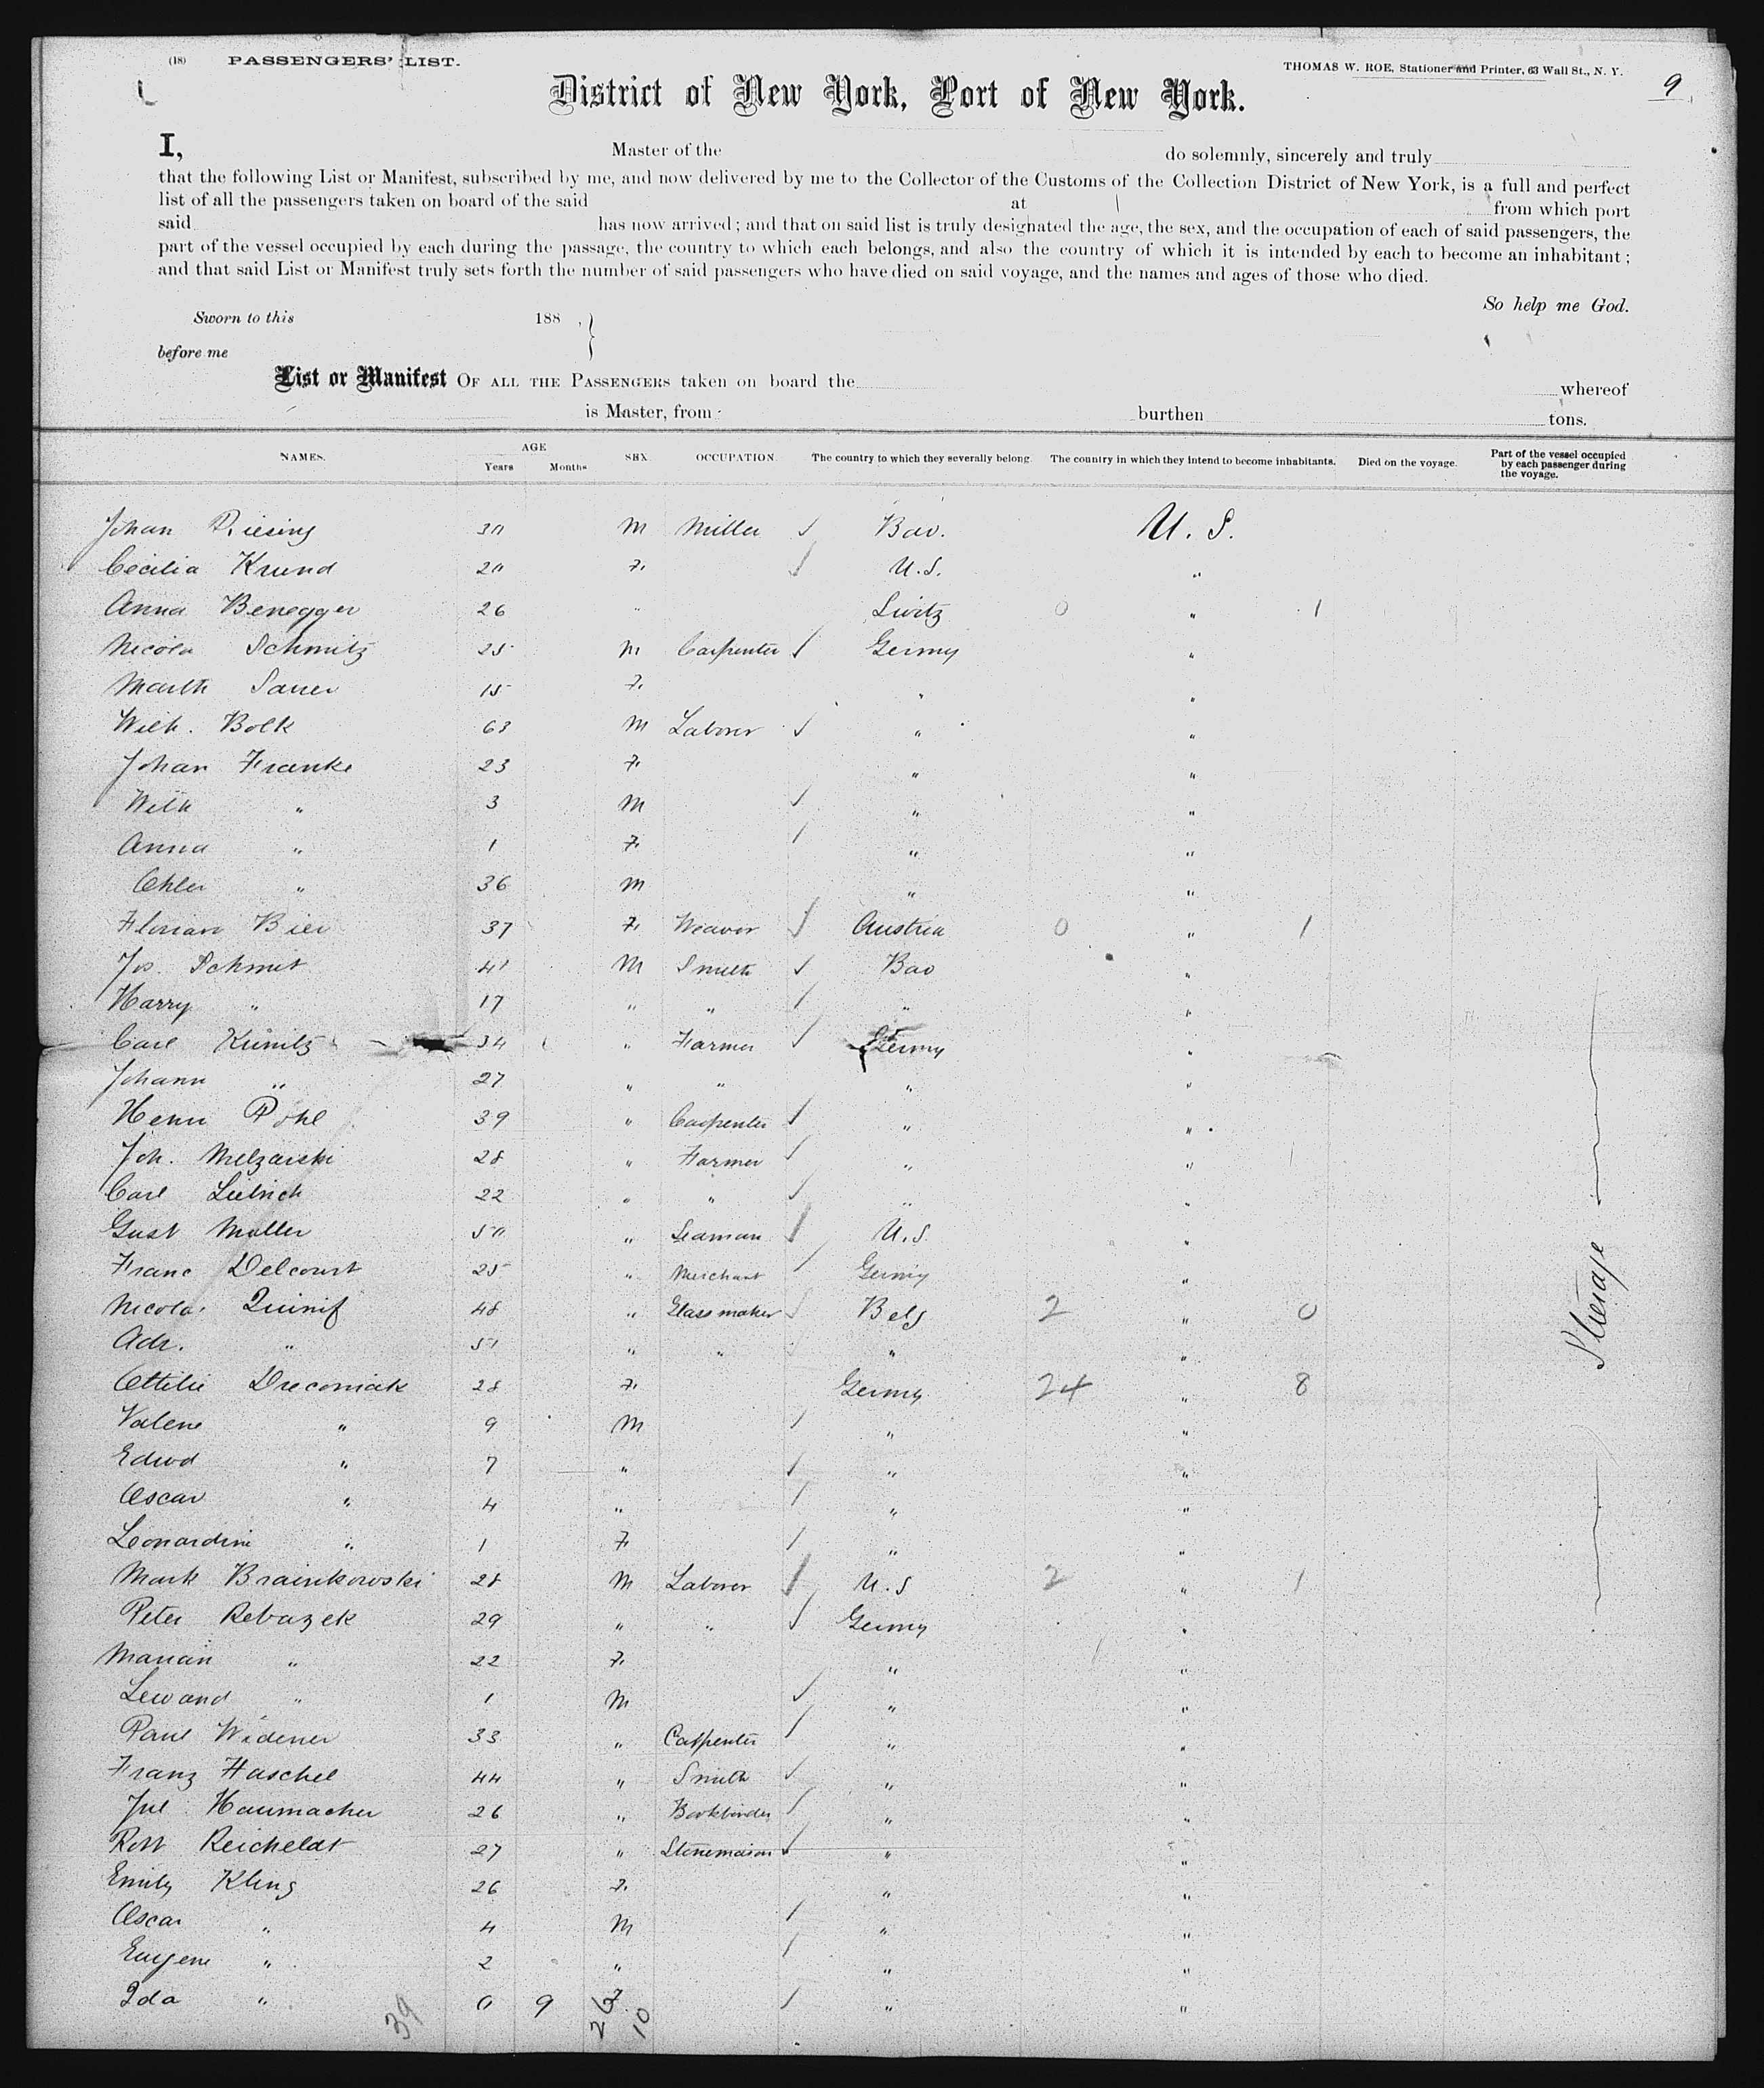 (18) PASSENGERS' LIST.
THOMAS W. ROE, Stationer and Printer, 63 Wall St., N. Y.
9
District of New York, Port of New York.
I, Master of the do solemnly, sincerely and truly
that the following List or Manifest, subscribed by me, and now delivered by me to the Collector of the Customs of the Collection District of New York, is a full and perfect
list of all the passengers taken on board of the said at from which port
said has now arrived; and that on said list is truly designated the age, the sex, and the occupation of each of said passengers, the
part of the vessel occupied by each during the passage, the country to which each belongs, and also the country of which it is intended by each to become an inhabitant;
and that said List or Manifest truly sets forth the number of said passengers who have died on said voyage, and the names and ages of those who died.
So help me God.
Sworn to this 188 , }
before me
List or Manifest OF ALL THE PASSENGERS taken on board the whereof
is Master, from burthen tons.
NAMES. AGE Years Months SEX OCCUPATION. The country to which they severally belong. The country in which they intend to become inhabitants. Died on the voyage. Part of the vessel occupied by each passenger during the voyage.
Johan 30 M Miller Bav. U. S.
Cecilia Krund 20 F. U.S. "
Anna Benegger 26 " Switz 0 " 1
Nicola Schmitz 25 M Carpenter Germy "
Marth Sauer 15 F. " "
Wilh. Bolk 63 M Laborer " "
Johan Franke 23 F. " "
Wilh " 3 M " "
Anna " 1 F. " "
" 36 M " "
Florian Bier 37 F. Weaver Austria 0 " 1
Jos. Schmit 41 M Smith Bav "
Harry " 17 " " " "
Carl Kunitz 34 " Farmer Germy "
Johann " 27 " " " "
Henri Pohl 39 " Carpenter " "
Joh. 28 " Farmer " " 1
Carl 22 " " " "
Gust Moller 50 " Seaman U.S. "
Franc Delcourt 25 " Merchant Germy "
Nicola Quinif 48 " Glassmaker Belg 2 " 0
Adr. " 51 " " " "
Ottilie Dreconiak 28 F. Germy 24 " 8
Valene " 9 M " "
Edwd " 7 " " "
Oscar " 4 " " "
Leonardine " 1 F " "
Mark Brainkowski 28 M Laborer U.S 2 " 1
Peter Rebazek 29 " " Germy "
Marian " 22 F. " "
Lewand " 1 M " "
Paul Widener 33 " Carpenter " "
Franz Haschel 44 " Smith " "
Jul Haumacher 26 " Bookbinder " "
Robt Reicheldt 27 " Stonemason " "
Emily Kling 26 F. " "
Oscar " 4 M " "
Eugene " 2 " " "
Ida " 0 9 F. " "
Steerage
39
26
10